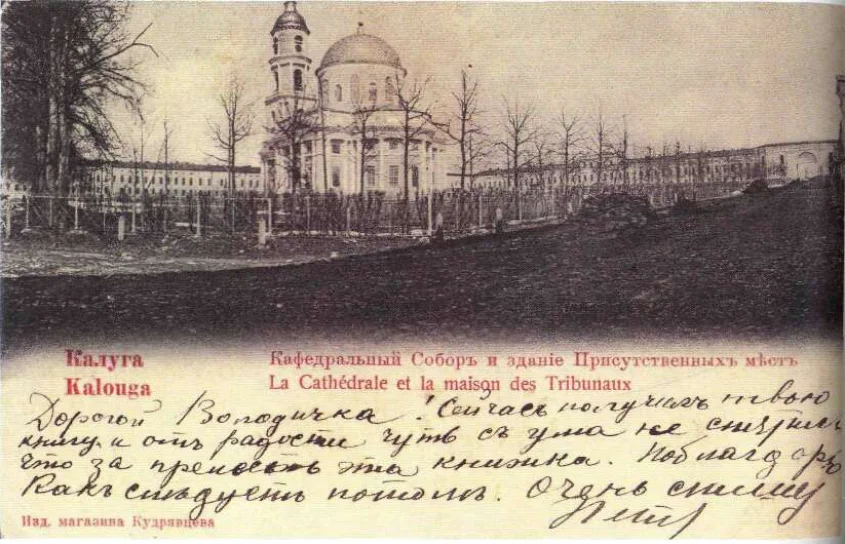 Калуга
Kalouga
Кафедральный Соборъ и зданіе Присутственныхъ мѣстъ
La Cathédrale et la maison des Tribunaux
Дорогой Володичка! Сейчасъ получилъ твою
книгу и отъ радости чуть съ ума не
что за прелесть эта книжка.
Какъ слѣдуетъ потомъ. Очень спѣшу
Петр
Изд. магазина Кудрявцева